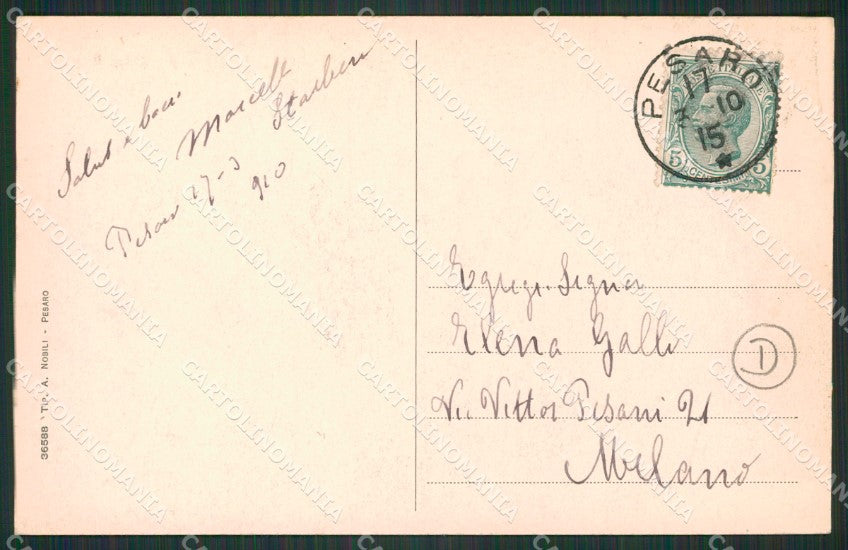 Saluti e baci
Marcell
Pesaro 17-3
910
36588 Tip. A. Nobili - Pesaro
PESARO
17
3 10
15
5 5
Egregi. Signa
Elena Galli
Via Vittor Pisani 21
Milano
D
CARTOLINOMANIA